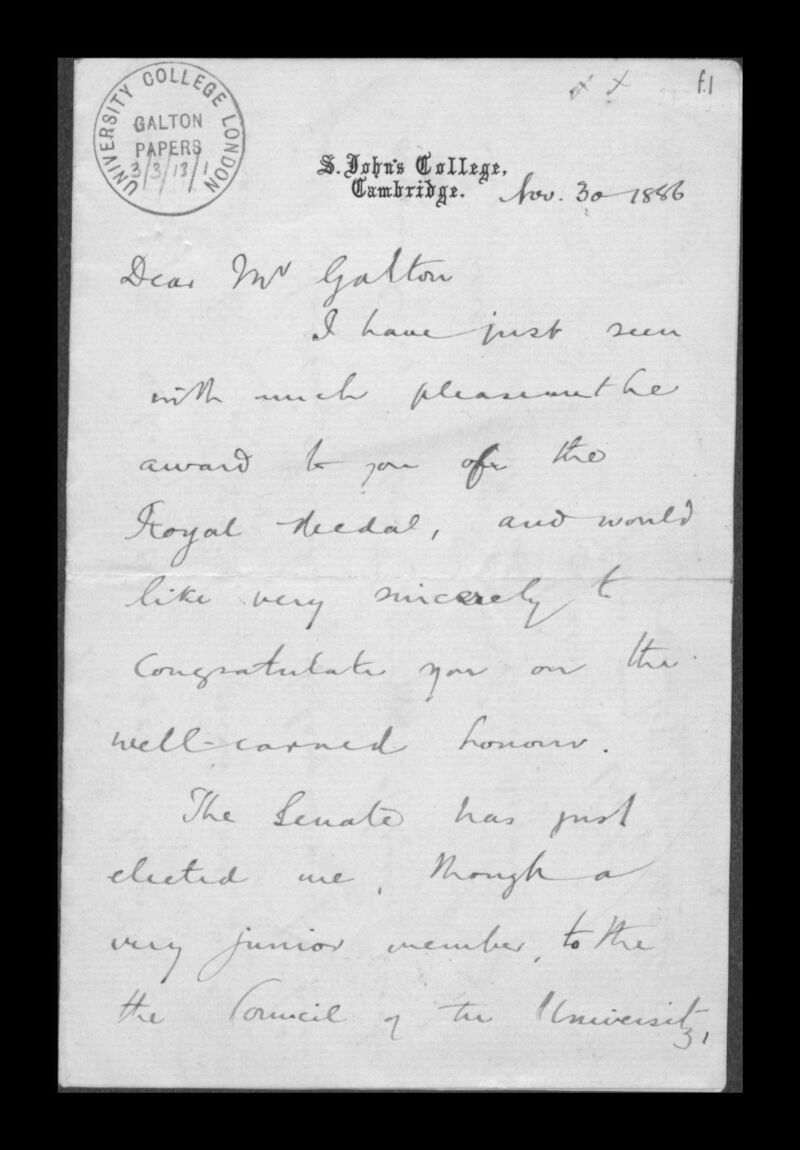 f.1
UNIVERSITY COLLEGE LONDON
GALTON
PAPERS
3/3/13/1
S. John's College,
Cambridge.
Nov. 30 1886
Dear Mr Galton
I have just seen
with much pleasure the
award to you of the
Royal Medal, and would
like very sincerely to
congratulate you on the
well-earned honour.
The Senate has just
elected me, though a
very junior member, to the
the Council of the University,